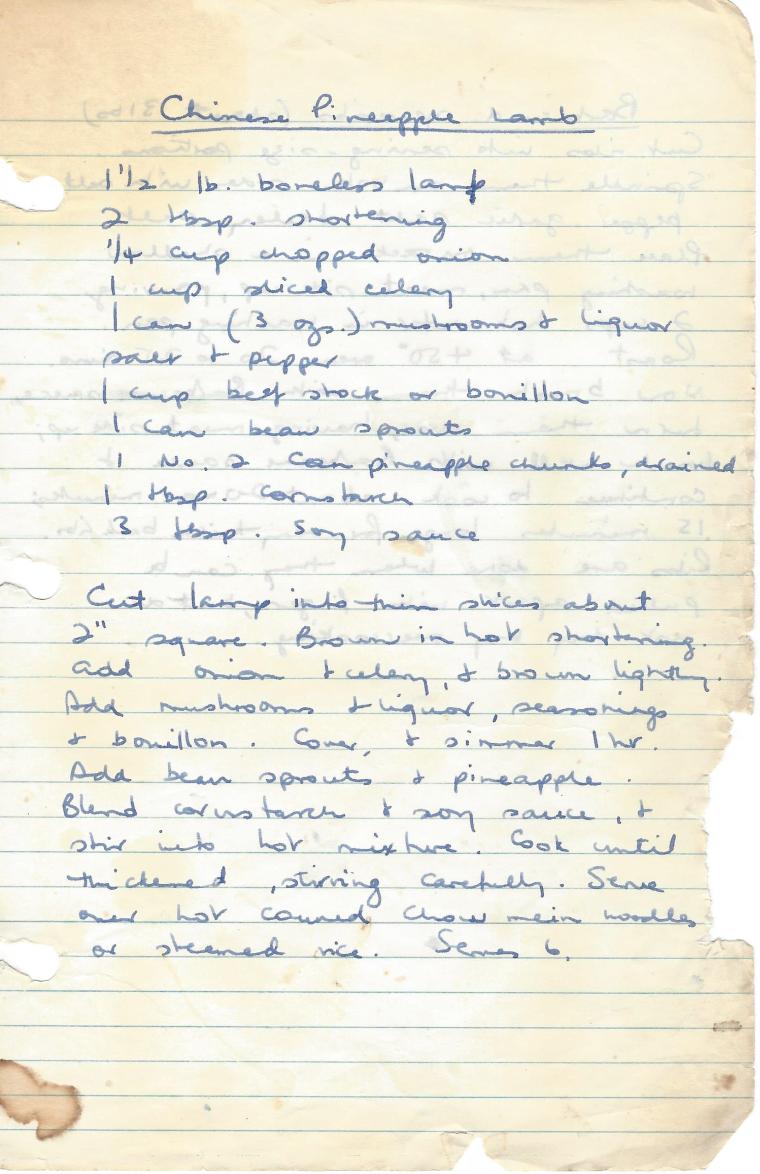 Chinese Pineapple Lamb
1 1/2 lb. boneless lamp
2 tbsp. shortening
1/4 cup chopped onion
1 cup sliced celery
1 can (3 ozs.) mushrooms & liquor
salt & pepper
1 cup beef stock or bouillon
1 can bean sprouts
1 No. 2 Can pineapple chunks, drained
1 tbsp. Cornstarch
3 tbsp. Soy sauce
Cut lamp into thin slices about
2" square. Brown in hot shortening.
add onion & celery, & brown lightly.
Add mushrooms & liquor, seasonings
& bouillon. Cover, & simmer 1 hr.
Add bean sprouts & pineapple.
Blend cornstarch & soy sauce, &
stir into hot mixture. Cook until
thickened, stirring carefully. Serve
over hot canned chow mein noodles
or steamed rice. Serves 6.